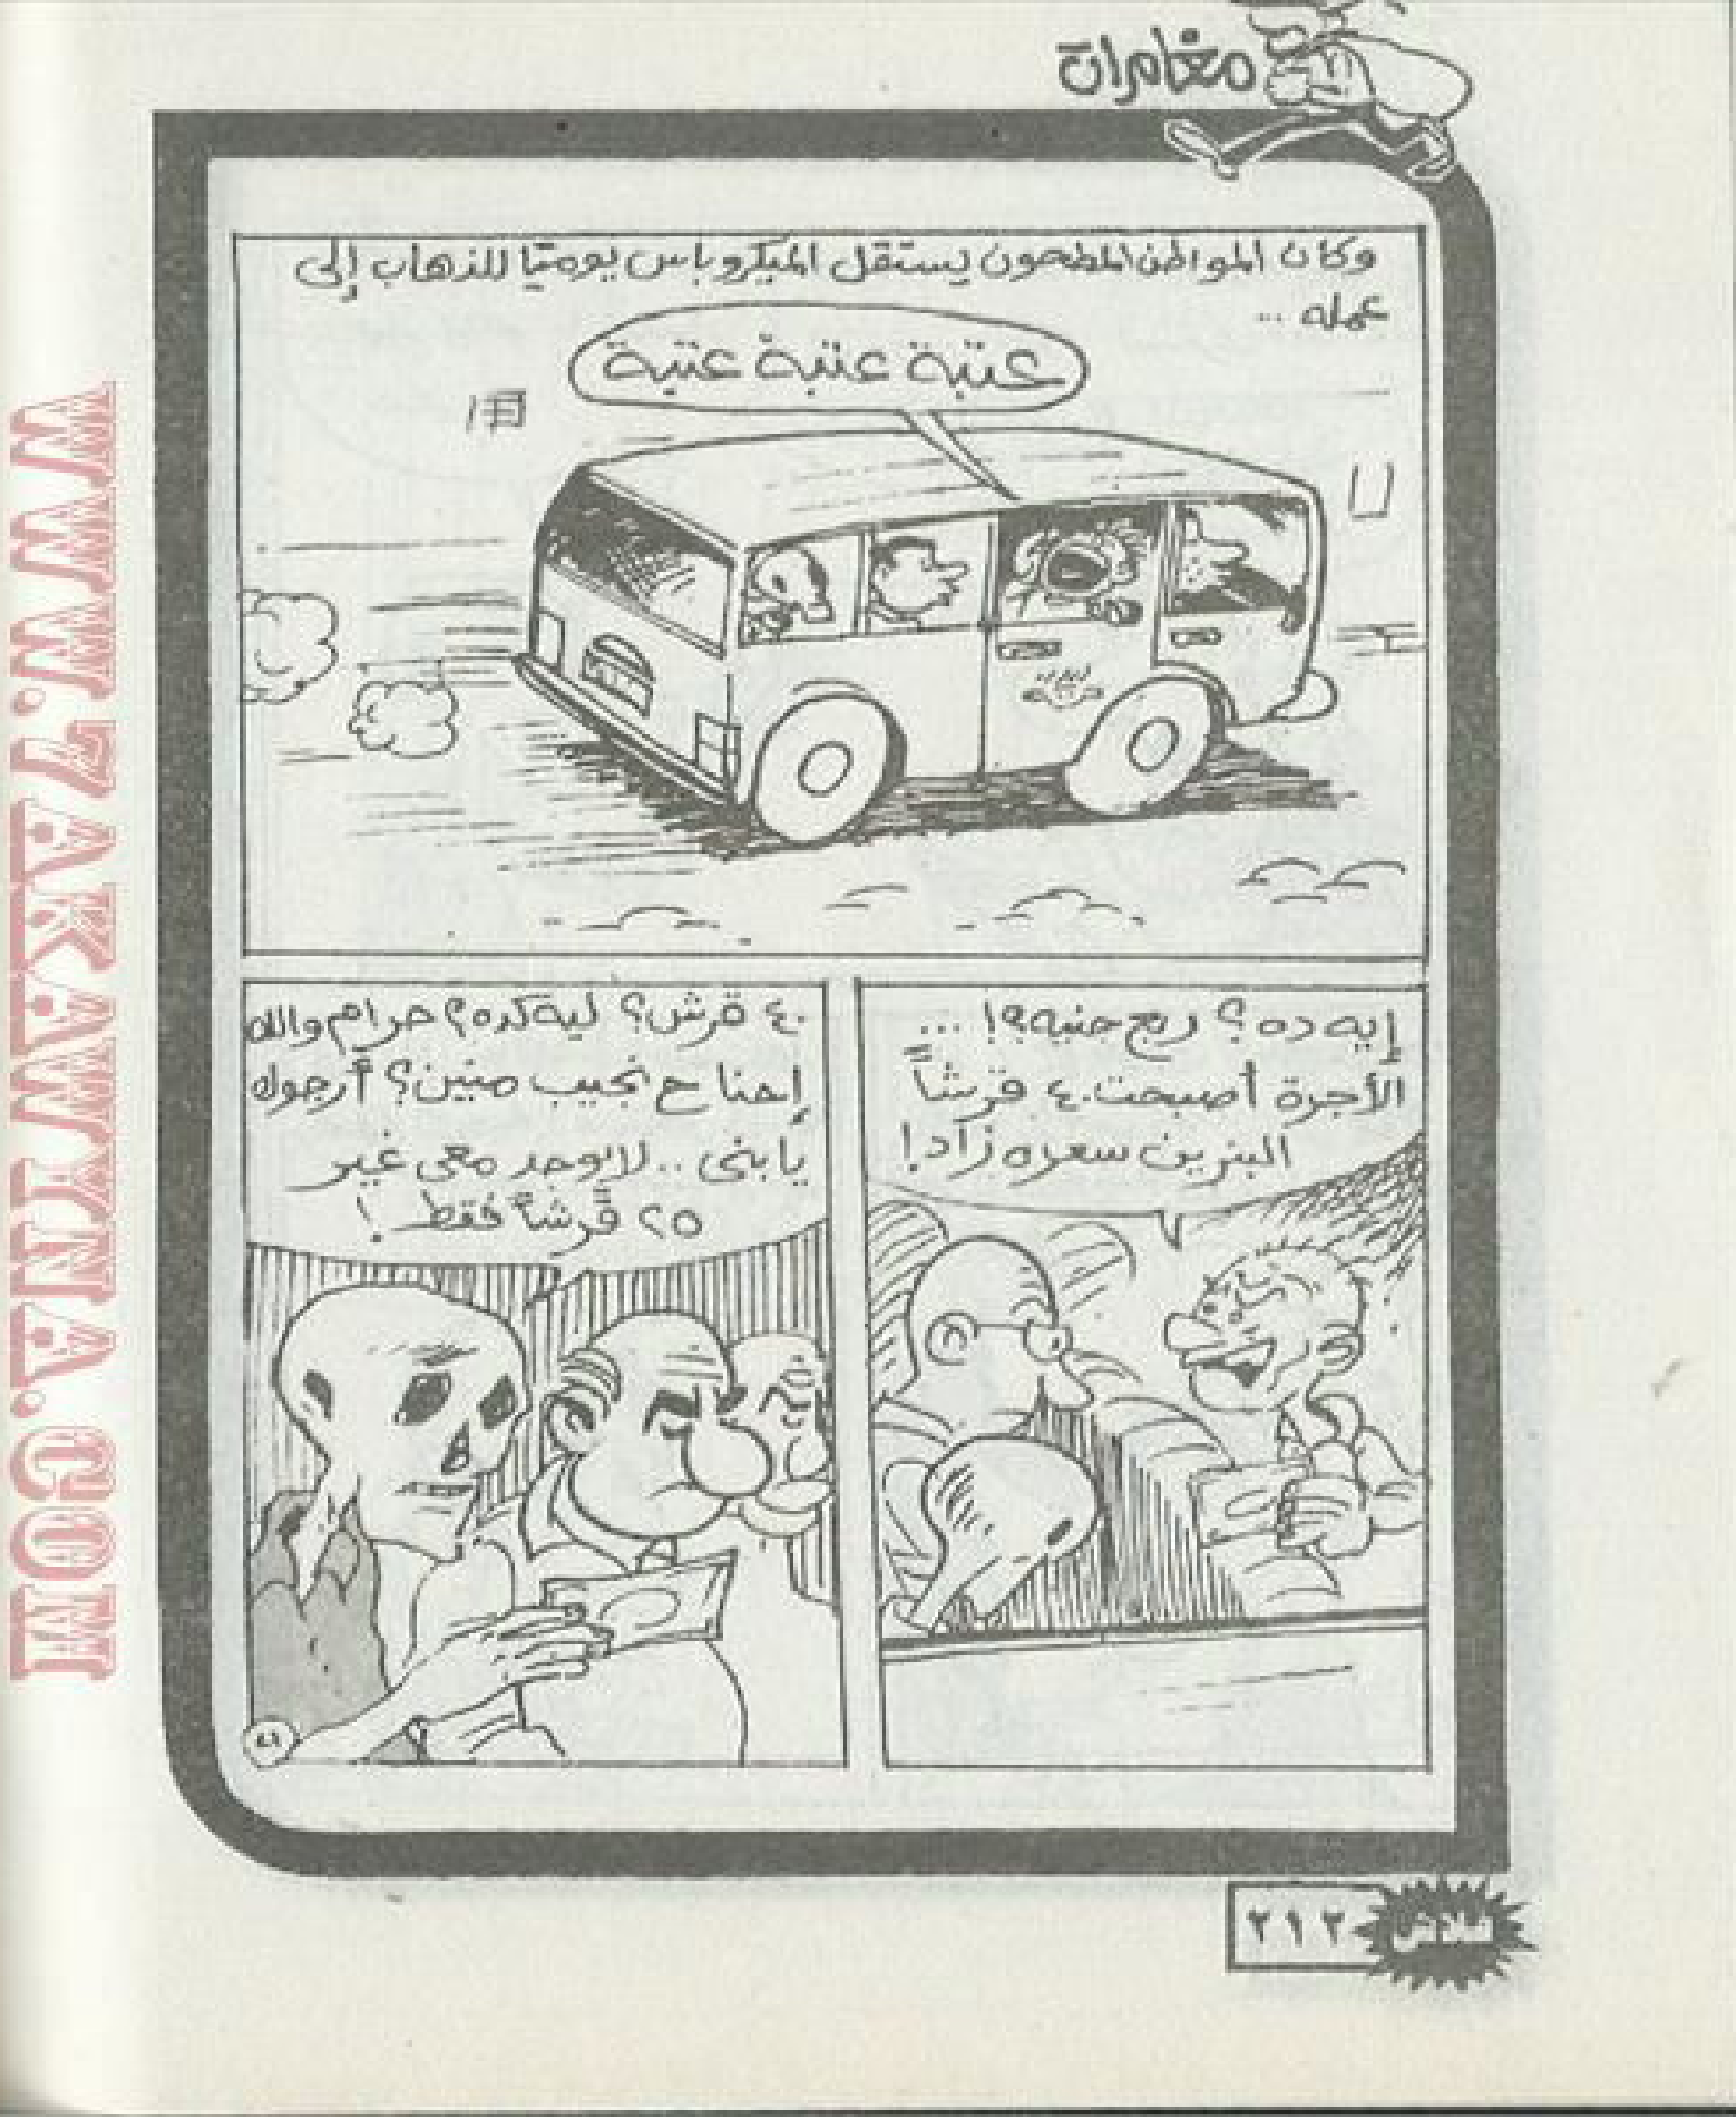 مغامرات
وكان المواطن المطحون يستقل الميكروباس يوميًا للذهاب إلى
عمله ..
عتبة عتبة عتبة
إيه ده ؟ ربع جنيه؟! ...
الأجرة أصبحت ٤٠ قرشاً
البنزين سعره زاد!
٤٠ قرش؟ ليه كده؟ حرام والله
إحنا ح نجيب منين؟ أرجوك
يا بنى .. لا يوجد معى غير
٢٥ قرشاً فقط !
فلاش ٢١٢
WWW.7AKAWTNA.COM